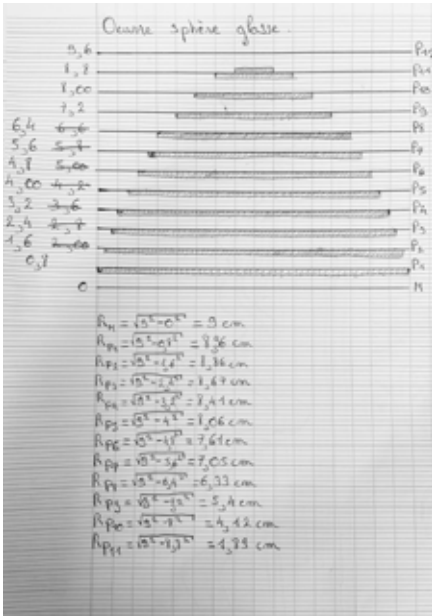 Oeuvre sphère glasse.
9,6 P12
8,8 P11
8,00 P10
7,2 P9
6,4 6,6 P8
5,6 5,8 P7
4,8 5,00 P6
4,00 4,2 P5
3,2 3,6 P4
2,4 2,8 P3
1,6 2,00 P2
0,8 P1
0 M
R_M = √9²-0² = 9 cm
R_P1 = √9²-0,8² = 8,96 cm
R_P2 = √9²-1,6² = 8,86 cm
R_P3 = √9²-2,4² = 8,67 cm
R_P4 = √9²-3,2² = 8,41 cm
R_P5 = √9²-4² = 8,06 cm
R_P6 = √9²-4,8² = 7,61 cm
R_P7 = √9²-5,6² = 7,05 cm
R_P8 = √9²-6,4² = 6,33 cm
R_P9 = √9²-7,2² = 5,4 cm
R_P10 = √9²-8² = 4,12 cm
R_P11 = √9²-8,8² = 1,89 cm